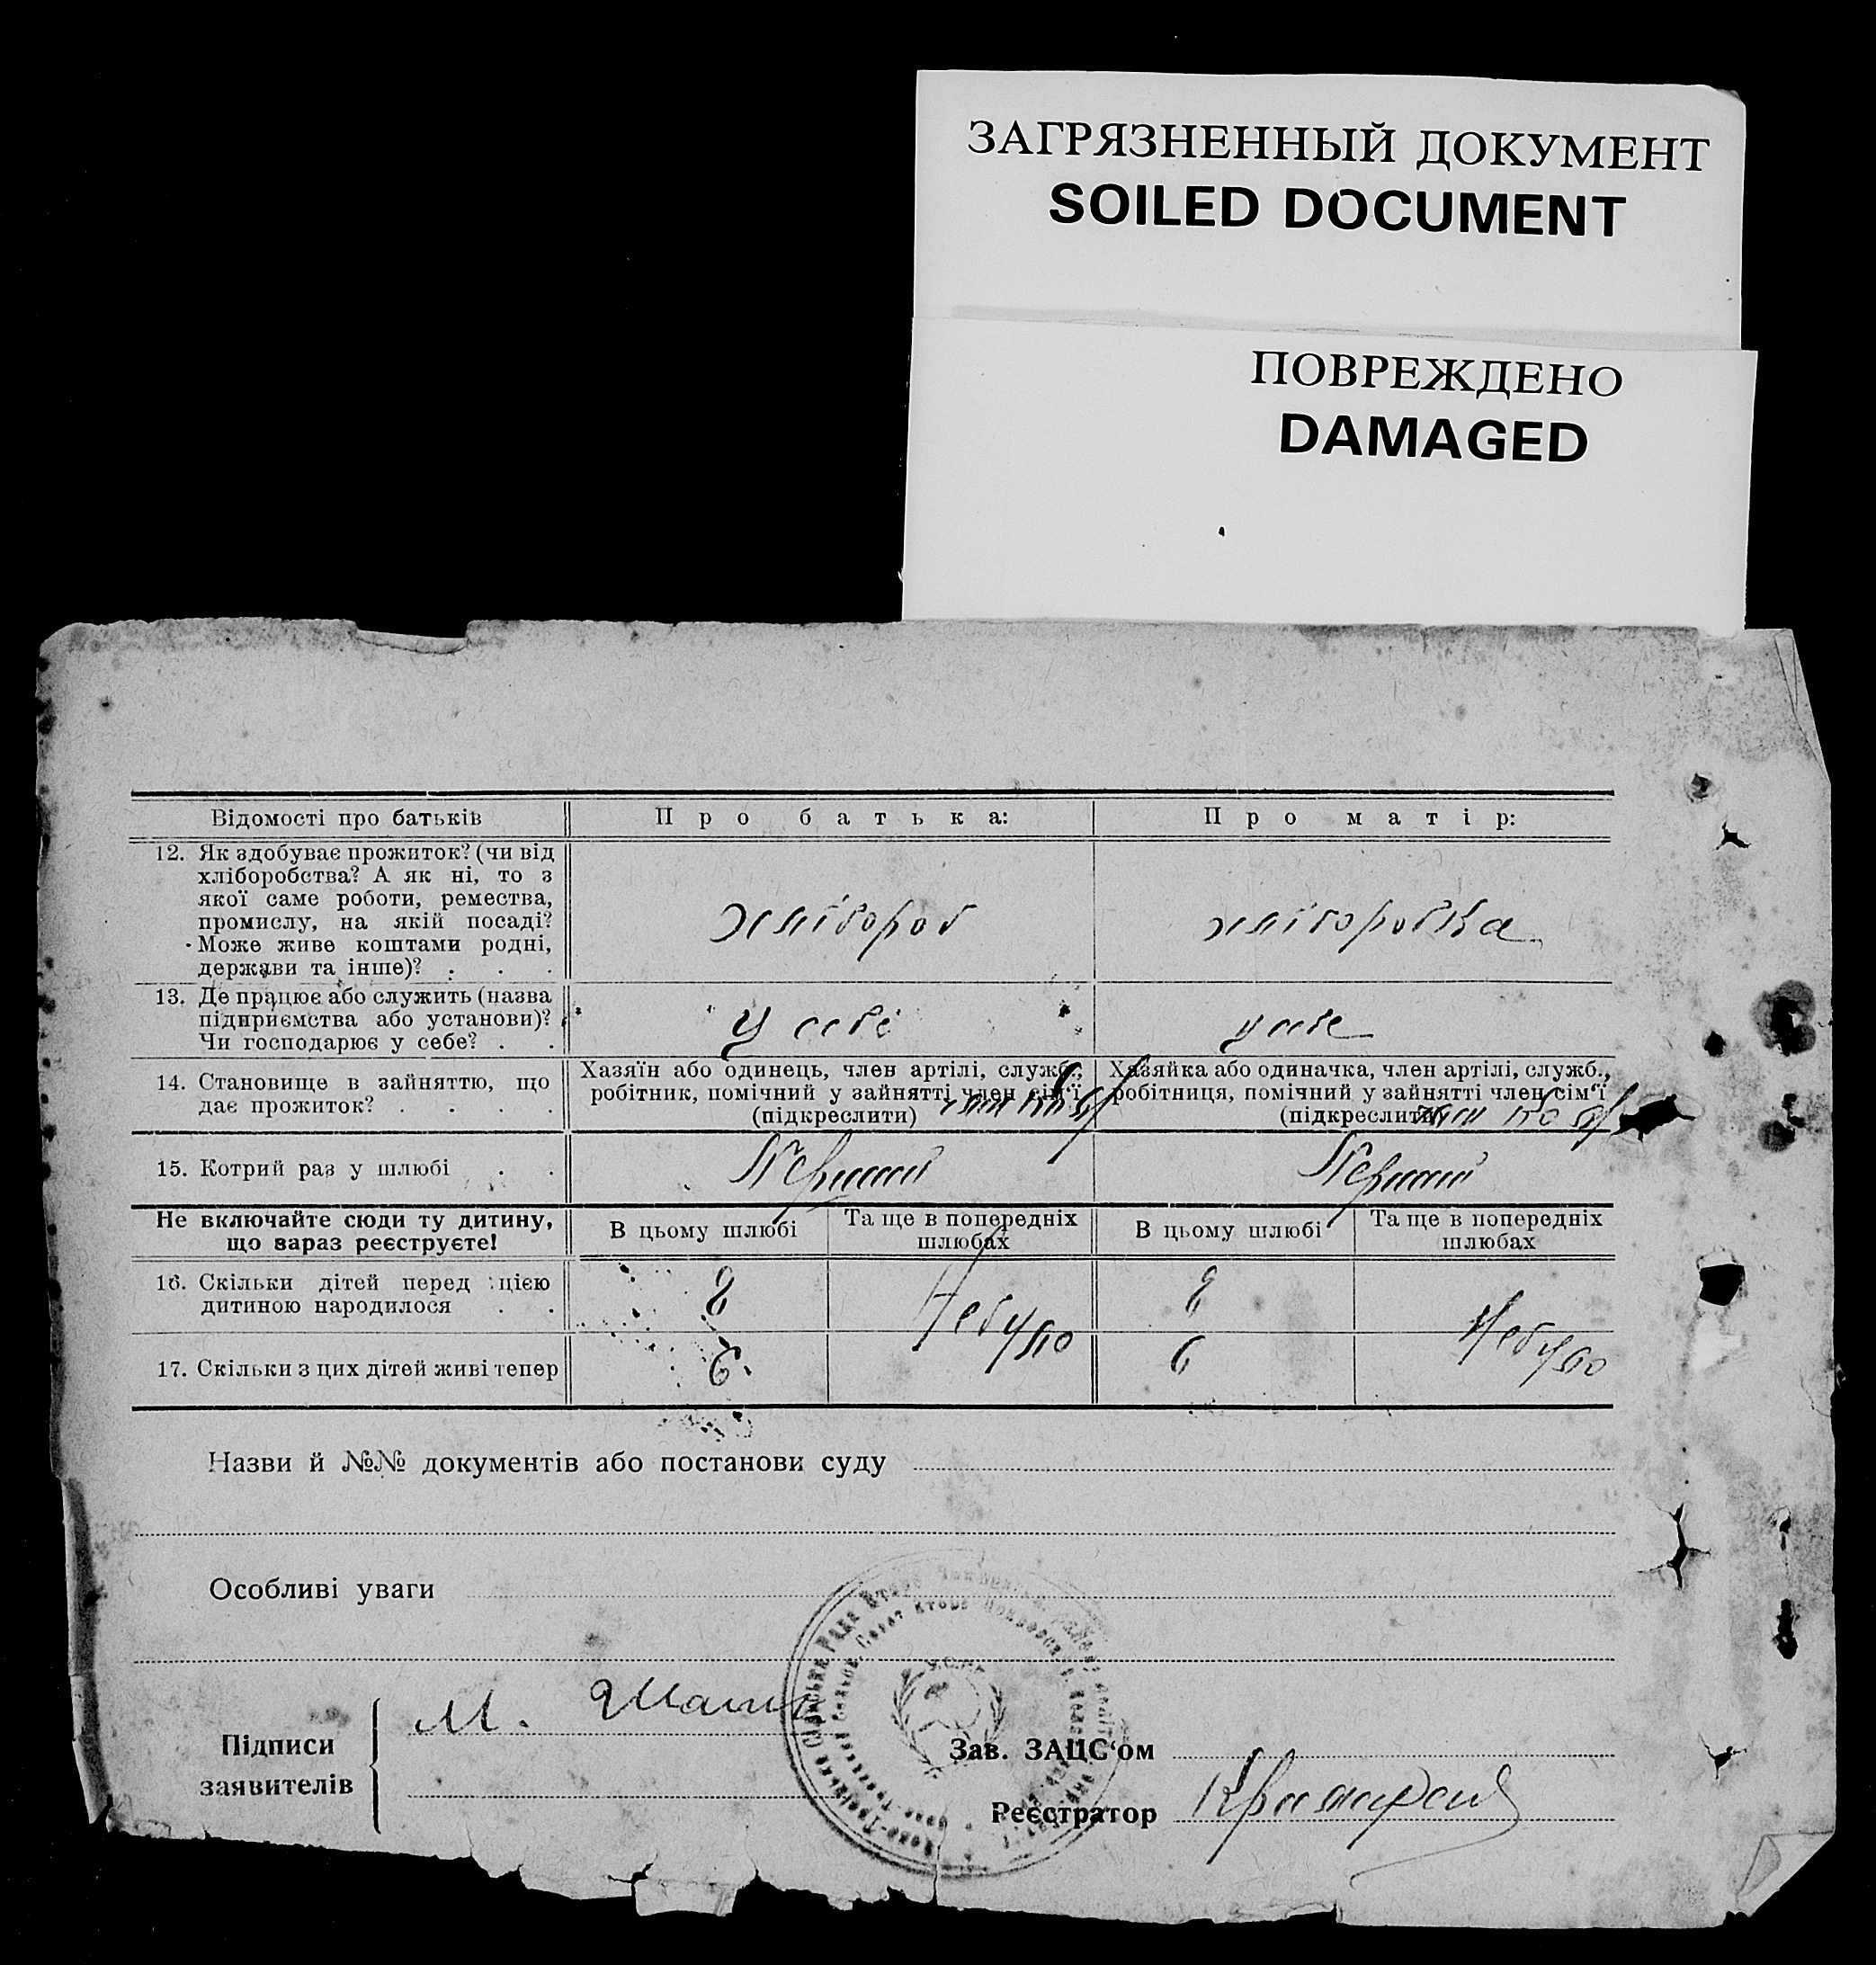 ЗАГРЯЗНЕННЫЙ ДОКУМЕНТ
SOILED DOCUMENT
ПОВРЕЖДЕНО
DAMAGED
Відомості про батьків
Про батька:
Про матір:
12. Як здобуває прожиток? (чи від
хліборобства? А як ні, то з
якої саме роботи, ремества,
промислу, на якій посаді?
Може живе коштами родні,
держави та інше)? . . .
хлібороб
хліборобка
13. Де працює або служить (назва
підприємства або установи)?
Чи господарює у себе? . .
у себе
у себе
14. Становище в зайняттю, що
дає прожиток? . . . .
Хазяїн або одинець, член артілі, служб.,
робітник, помічний у зайнятті член сім'ї
(підкреслити)
Хазяйка або одиначка, член артілі, служб.,
робітниця, помічний у зайнятті член сім'ї
(підкреслити)
15. Котрий раз у шлюбі . .
Перший
Перший
Не включайте сюди ту дитину,
що зараз реєструєте!
В цьому шлюбі
Та ще в попередніх
шлюбах
В цьому шлюбі
Та ще в попередніх
шлюбах
16. Скільки дітей перед цією
дитиною народилося . .
8
Небуло
8
Небуло
17. Скільки з цих дітей живі тепер
6
6
Назви й №№ документів або постанови суду
Особливі уваги
Підписи
заявителів
М.
Зав. ЗАЦС'ом
Реєстратор